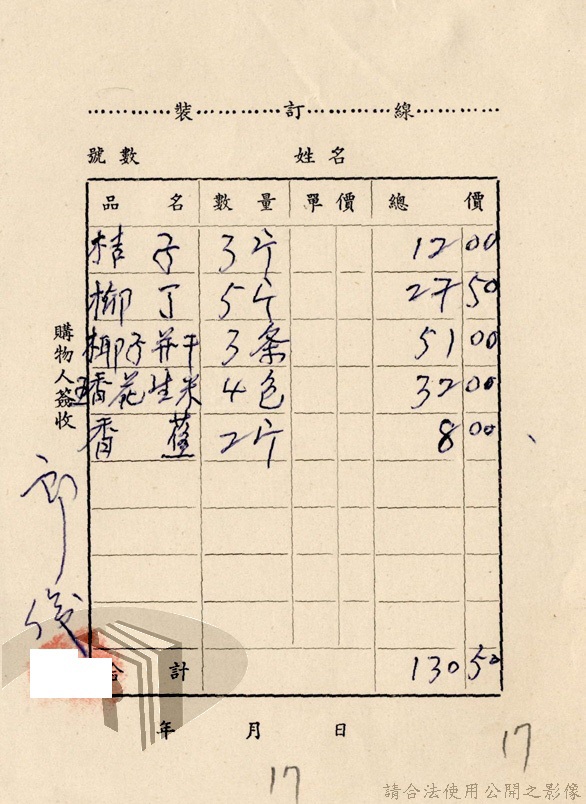 裝 訂 線
號數 姓名
品名 數量 單價 總價
桔子 3斤 12 00
柳丁 5斤 27 50
椰子并干 3条 51 00
五香花生米 4包 32 00
香蕉 2斤 8 00
合計 130 50
購物人簽收
年 月 日
17
17
請合法使用公開之影像